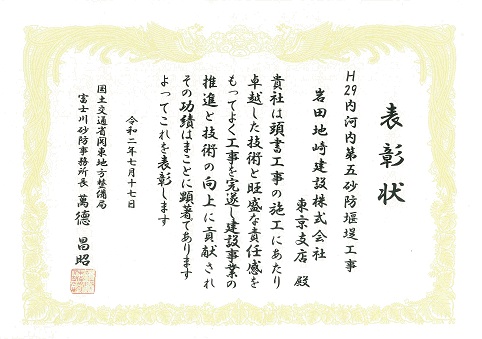 表彰状
H29内河内第五砂防堰堤工事
岩田地崎建設株式会社
東京支店 殿
貴社は頭書工事の施工にあたり
卓越した技術と旺盛な責任感を
もってよく工事を完遂し建設事業の
推進と技術の向上に貢献され
その功績はまことに顕著であります
よってこれを表彰します
令和二年七月十七日
国土交通省関東地方整備局
富士川砂防事務所長 萬德 昌昭